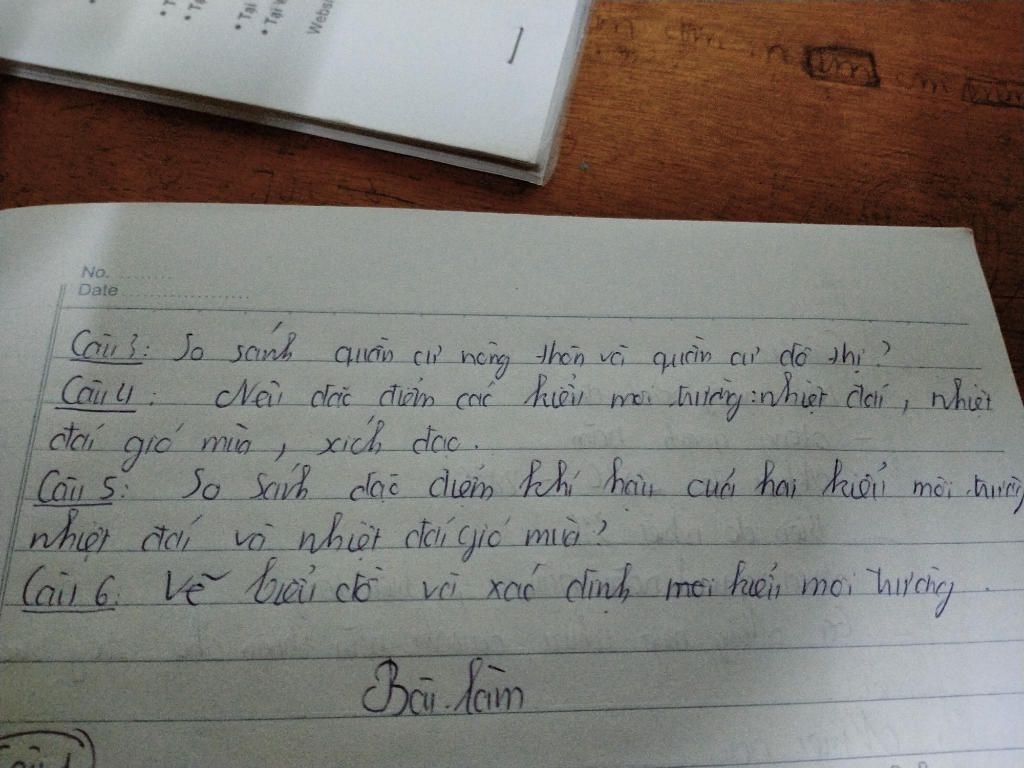 • Tại
Websi
in
im
No.
Date
Câu 3: So sánh quần cư nông thôn và quần cư đô thị?
Câu 4: Nêu đặc điểm các kiểu môi trường: nhiệt đới, nhiệt
đới gió mùa, xích đạo.
Câu 5: So sánh đặc điểm khí hậu của hai kiểu môi trường
nhiệt đới và nhiệt đới gió mùa?
Câu 6: Vẽ biểu đồ và xác định mỗi kiểu môi trường.
Bài làm